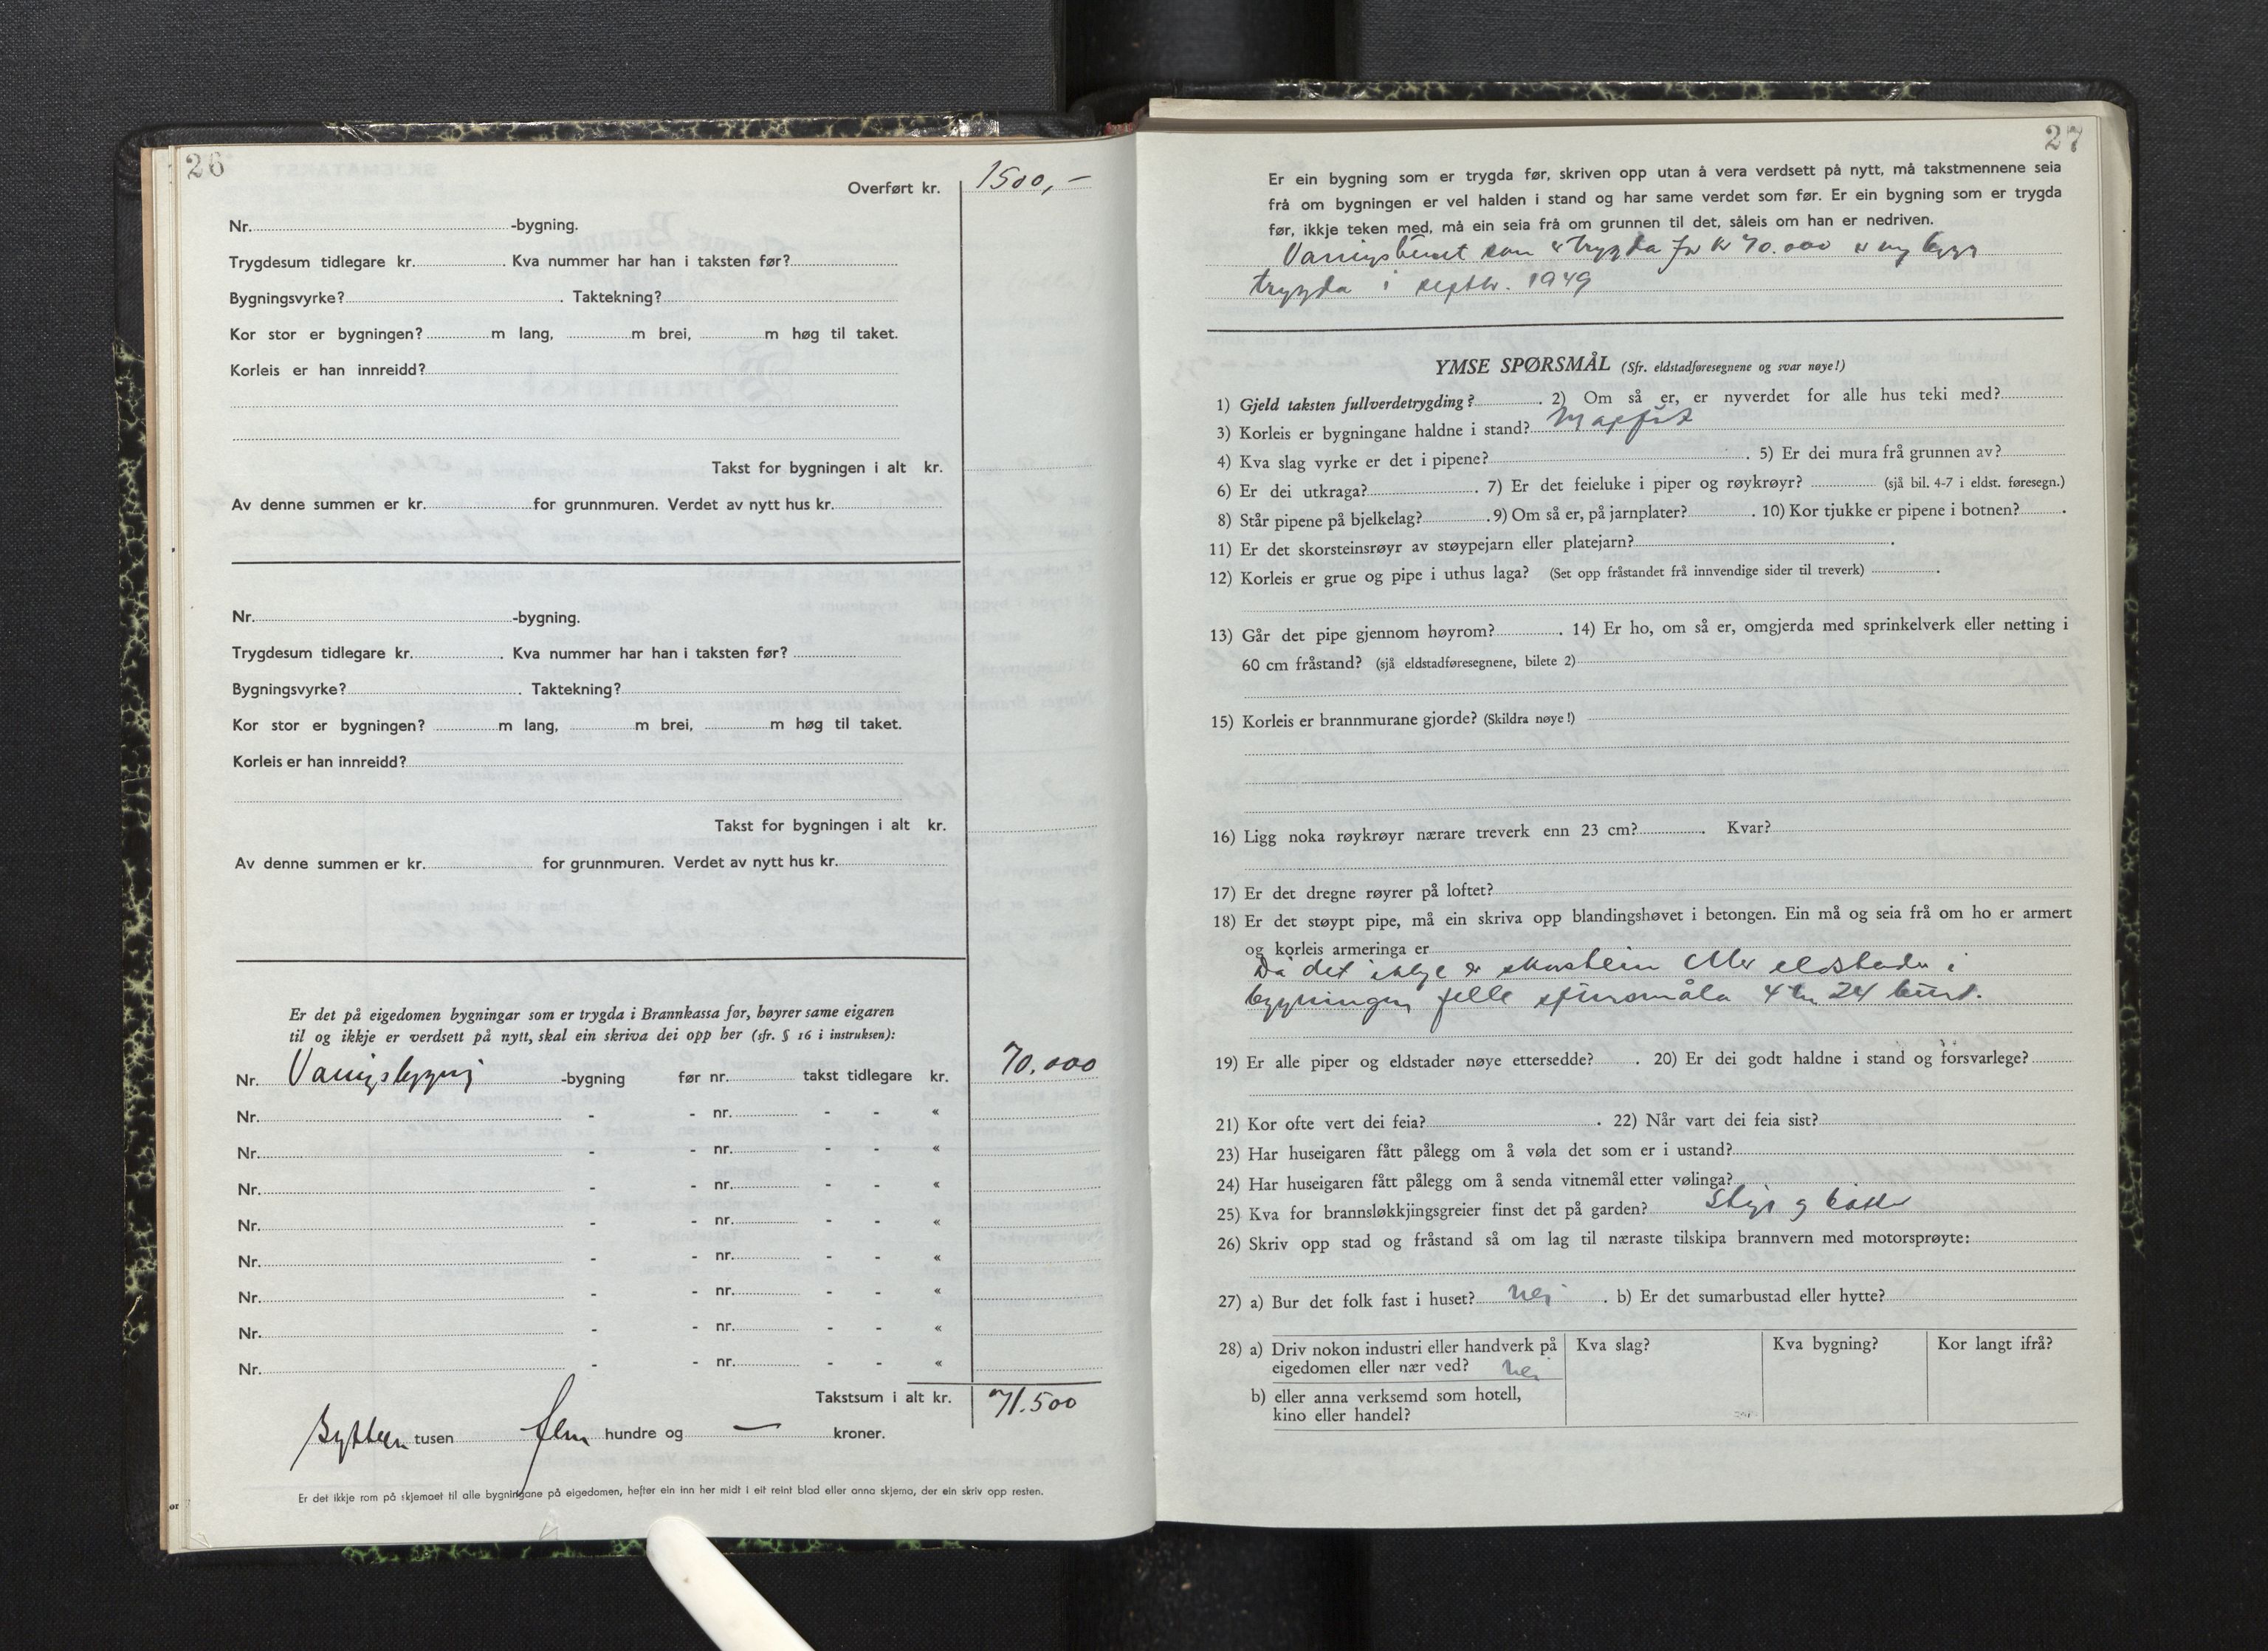 26
Overført kr. 1500,-
Nr. -bygning.
Trygdesum tidlegare kr. . Kva nummer har han i taksten før?
Bygningsvyrke? . Taktekning?
Kor stor er bygningen? m lang, m brei, m høg til taket.
Korleis er han innreidd?
Takst for bygningen i alt kr.
Av denne summen er kr. for grunnmuren. Verdet av nytt hus kr.
Nr. -bygning.
Trygdesum tidlegare kr. . Kva nummer har han i taksten før?
Bygningsvyrke? . Taktekning?
Kor stor er bygningen? m lang, m brei, m høg til taket.
Korleis er han innreidd?
Takst for bygningen i alt kr.
Av denne summen er kr. for grunnmuren. Verdet av nytt hus kr.
Er det på eigedomen bygningar som er trygda i Brannkassa før, høyrer same eigaren
til og ikkje er verdsett på nytt, skal ein skriva dei opp her (sfr. § 16 i instruksen):
Nr. Vaningsbygnig -bygning før nr. takst tidlegare kr. 70.000
Nr. - - nr. - - «
Nr. - - nr. - - «
Nr. - - nr. - - «
Nr. - - nr. - - «
Nr. - - nr. - - «
Nr. - - nr. - - «
Nr. - - nr. - - «
Nr. - - nr. - - «
Takstsum i alt kr. 71.500
tusen fem hundre og — kroner.
Er det ikkje rom på skjemaet til alle bygningane på eigedomen, hefter ein inn her midt i eit reint blad eller anna skjema, der ein skriv opp resten.
27
Er ein bygning som er trygda før, skriven opp utan å vera verdsett på nytt, må takstmennene seia
frå om bygningen er vel halden i stand og har same verdet som før. Er ein bygning som er trygda
før, ikkje teken med, må ein seia frå om grunnen til det, såleis om han er nedriven.
Vaningshuset som er trygda for kr 70.000 er ny bygg
trygda i septbr. 1949
YMSE SPØRSMÅL (Sfr. eldstadføresegnene og svar nøye!)
1) Gjeld taksten fullverdetrygding? . 2) Om så er, er nyverdet for alle hus teki med?
3) Korleis er bygningane haldne i stand?
4) Kva slag vyrke er det i pipene? . 5) Er dei mura frå grunnen av?
6) Er dei utkraga? . 7) Er det feieluke i piper og røykrøyr? (sjå bil. 4-7 i eldst. føresegn.)
8) Står pipene på bjelkelag? . 9) Om så er, på jarnplater? . 10) Kor tjukke er pipene i botnen? .
11) Er det skorsteinsrøyr av støypejarn eller platejarn? .
12) Korleis er grue og pipe i uthus laga? (Set opp fråstandet frå innvendige sider til treverk) .
13) Går det pipe gjennom høyrom? . 14) Er ho, om så er, omgjerda med sprinkelverk eller netting i
60 cm fråstand? (sjå eldstadføresegnene, bilete 2)
15) Korleis er brannmurane gjorde? (Skildra nøye!)
16) Ligg noka røykrøyr nærare treverk enn 23 cm? . Kvar?
17) Er det dregne røyrer på loftet?
18) Er det støypt pipe, må ein skriva opp blandingshøvet i betongen. Ein må og seia frå om ho er armert
og korleis armeringa er
Då det ikkje er skorstein eller eldstader i
bygningen felle spursmåla 4 til 24 burt.
19) Er alle piper og eldstader nøye ettersedde? . 20) Er dei godt haldne i stand og forsvarlege?
21) Kor ofte vert dei feia? . 22) Når vart dei feia sist?
23) Har huseigaren fått pålegg om å vøla det som er i ustand?
24) Har huseigaren fått pålegg om å senda vitnemål etter vølinga?
25) Kva for brannsløkkjingsgreier finst det på garden? Stige og bøtter
26) Skriv opp stad og fråstand så om lag til næraste tilskipa brannvern med motorsprøyte:
27) a) Bur det folk fast i huset? nei . b) Er det sumarbustad eller hytte?
28) a) Driv nokon industri eller handverk på
eigedomen eller nær ved? nei
Kva slag? Kva bygning? Kor langt ifrå?
b) eller anna verksemd som hotell,
kino eller handel?